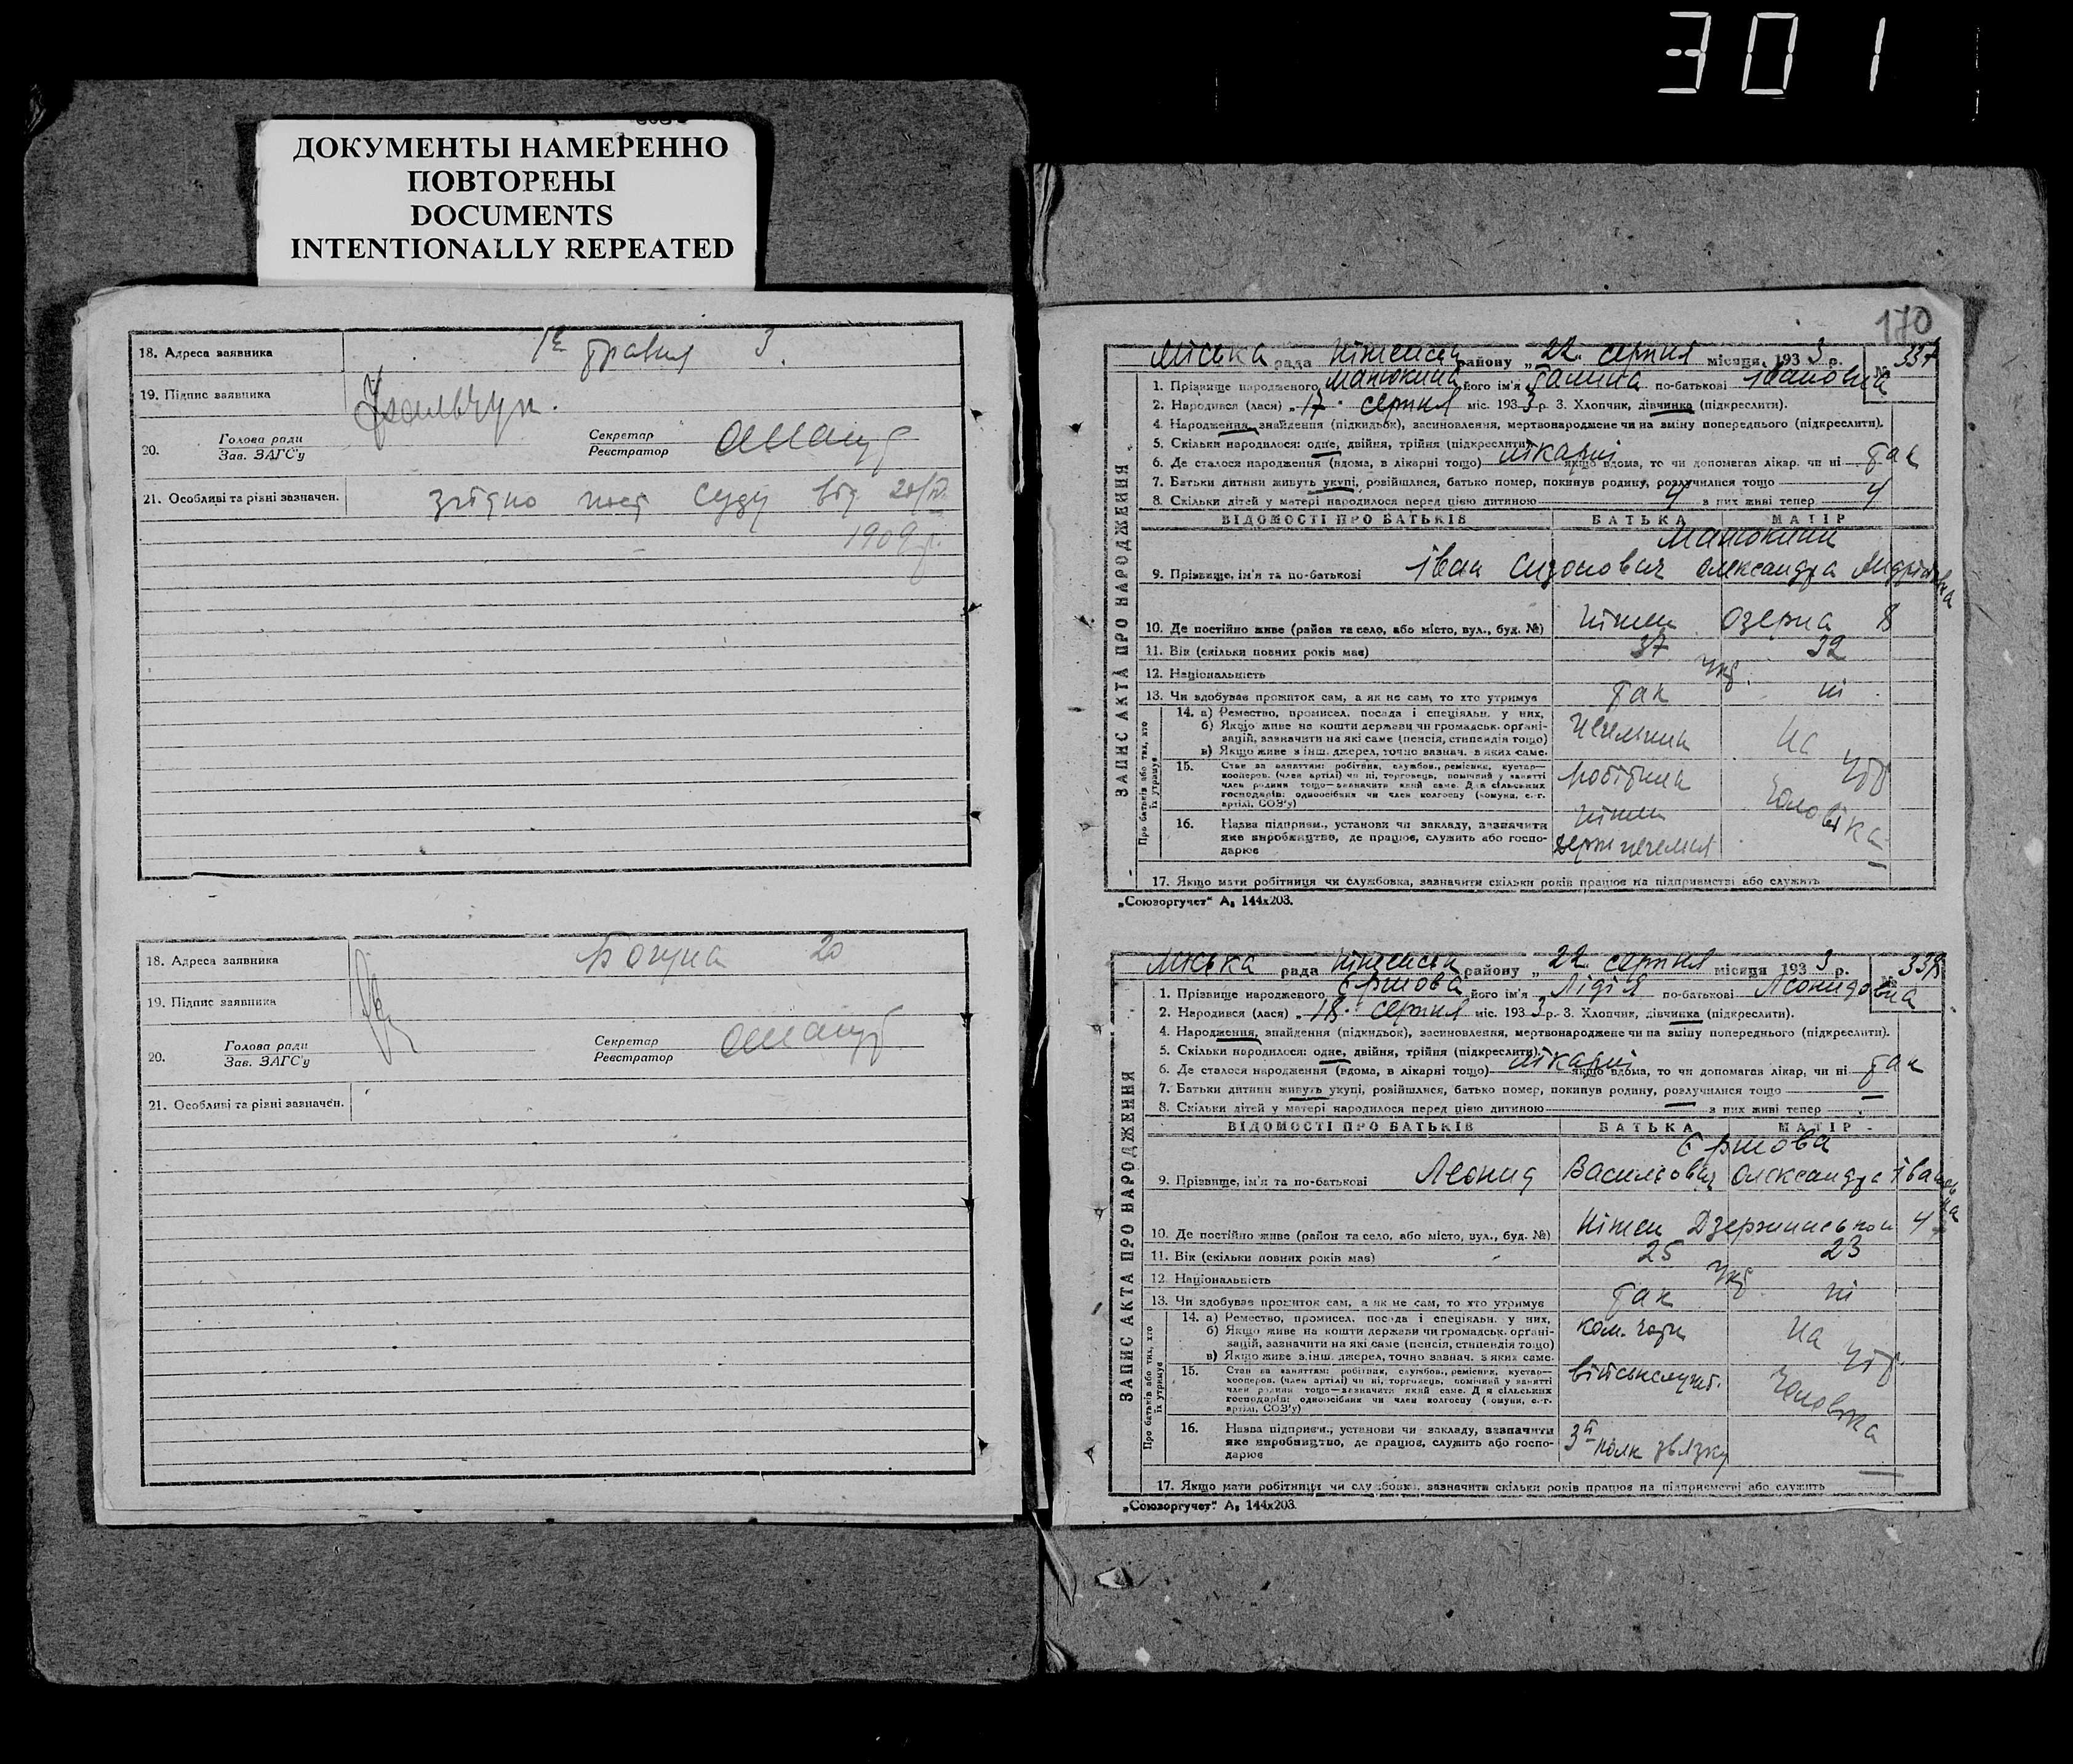 301
ДОКУМЕНТЫ НАМЕРЕННО
ПОВТОРЕНЫ
DOCUMENTS
INTENTIONALLY REPEATED
18. Адреса заявника 1е травня 3.
19. Підпис заявника
20. Голова ради
Зав. ЗАГС'у
Секретар
Реєстратор
21. Особливі та різні зазначен. згідно пост суду від 20/IV
1909 р.
18. Адреса заявника Богуна 20
19. Підпис заявника
20. Голова ради
Зав. ЗАГС'у
Секретар
Реєстратор
21. Особливі та різні зазначен.
170
ЗАПИС АКТА ПРО НАРОДЖЕННЯ
Міська рада Ніженськ району „22" серпня місяця 1933 р. № 337
1. Прізвище народженого Матюкина його ім'я Галина по-батькові Івановна
2. Народився (лася) „17" серпня міс. 1933 р. 3. Хлопчик, дівчинка (підкреслити).
4. Народження, знайдення (підкидьок), засиновлення, мертвонароджене чи на зміну попереднього (підкреслити).
5. Скільки народилося: одне, двійня, трійня (підкреслити)
6. Де сталося народження (вдома, в лікарні тощо) лікарні якщо вдома, то чи допомагав лікар, чи ні так
7. Батьки дитини живуть укупі, розійшлися, батько помер, покинув родину, розлучилися тощо
8. Скільки дітей у матері народилося перед цією дитиною 4 з них живі тепер 4
ВІДОМОСТІ ПРО БАТЬКІВ БАТЬКА МАТІР
Матюкини
9. Прізвище, ім'я та по-батькові Іван Сизонович Олександра Андріївна
10. Де постійно живе (район та село, або місто, вул., буд. №) Ніжен Озерна 8
11. Вік (скільки повних років має) 37 32
12. Національність Укр.
13. Чи здобуває прожиток сам, а як не сам, то хто утримує так ні
Про батьків або тих, хто їх утримує
14. а) Ремество, промисел, посада і спеціяльн. у них,
б) Якщо живе не кошти держави чи громадськ. органі-
зацій, зазначити на які саме (пенсія, стипендія тощо)
в) Якщо живе з інш. джерел, точно зазнач. з яких саме.
на
15. Стан за заняттям: робітник, службов., ремісник, кустар—
кооперов. (член артілі) чи ні, торговець, помічний у занятті
член родини тощо—зазначити який саме. Для сільських
господарів: одноосібник чи член колгоспу (комуни, с.-г.
артілі, СОЗ'у)
робітник утр
чоловіка
16. Назва підприєм., установи чи закладу, зазначити
яке виробництво, де працює, служить або госпо-
дарює
Ніжен
17. Якщо мати робітниця чи службовка, зазначити скільки років працює на підприємстві або служить
„Союзоргучет" А₅ 144х203.
ЗАПИС АКТА ПРО НАРОДЖЕННЯ
Міська рада Ніженськ району „22" серпня місяця 1933 р. № 338
1. Прізвище народженого Єршова його ім'я Лідія по-батькові Леонидовна
2. Народився (лася) „18" серпня міс. 1933 р. 3. Хлопчик, дівчинка (підкреслити).
4. Народження, знайдення (підкидьок), засиновлення, мертвонароджене чи на зміну попереднього (підкреслити).
5. Скільки народилося: одне, двійня, трійня (підкреслити).
6. Де сталося народження (вдома, в лікарні тощо) лікарні якщо вдома, то чи допомагав лікар, чи ні так
7. Батьки дитини живуть укупі, розійшлися, батько помер, покинув родину, розлучилися тощо —
8. Скільки дітей у матері народилося перед цією дитиною — з них живі тепер
ВІДОМОСТІ ПРО БАТЬКІВ БАТЬКА МАТІР
Єршова
9. Прізвище, ім'я та по-батькові Леонид Васильович Олександра Івановна
10. Де постійно живе (район та село, або місто, вул., буд. №) Ніжен Дзержинськой 4
11. Вік (скільки повних років має) 25 23
12. Національність Укр
13. Чи здобуває прожиток сам, а як не сам, то хто утримує так ні
Про батьків або тих, хто їх утримує
14. а) Ремество, промисел, посада і спеціяльн. у них,
б) Якщо живе на кошти держави чи громадськ. органі-
зацій, зазначити на які саме (пенсія, стипендія тощо)
в) Якщо живе з інш. джерел, точно зазнач. з яких саме.
на
15. Стан за заняттям: робітник, службов., ремісник, кустар—
кооперов. (член артілі) чи ні, торговець, помічний у занятті
член родини тощо—зазначити який саме. Для сільських
господарів: одноосібник чи член колгоспу (комуни, с.-г.
артілі, СОЗ'у)
військслужб. утр.
чоловіка
16. Назва підприєм., установи чи закладу, зазначити
яке виробництво, де працює, служить або госпо-
дарює
3й полк звязку
17. Якщо мати робітниця чи службовка, зазначити скільки років працює на підприємстві або служить
„Союзоргучет" А₅ 144х203.